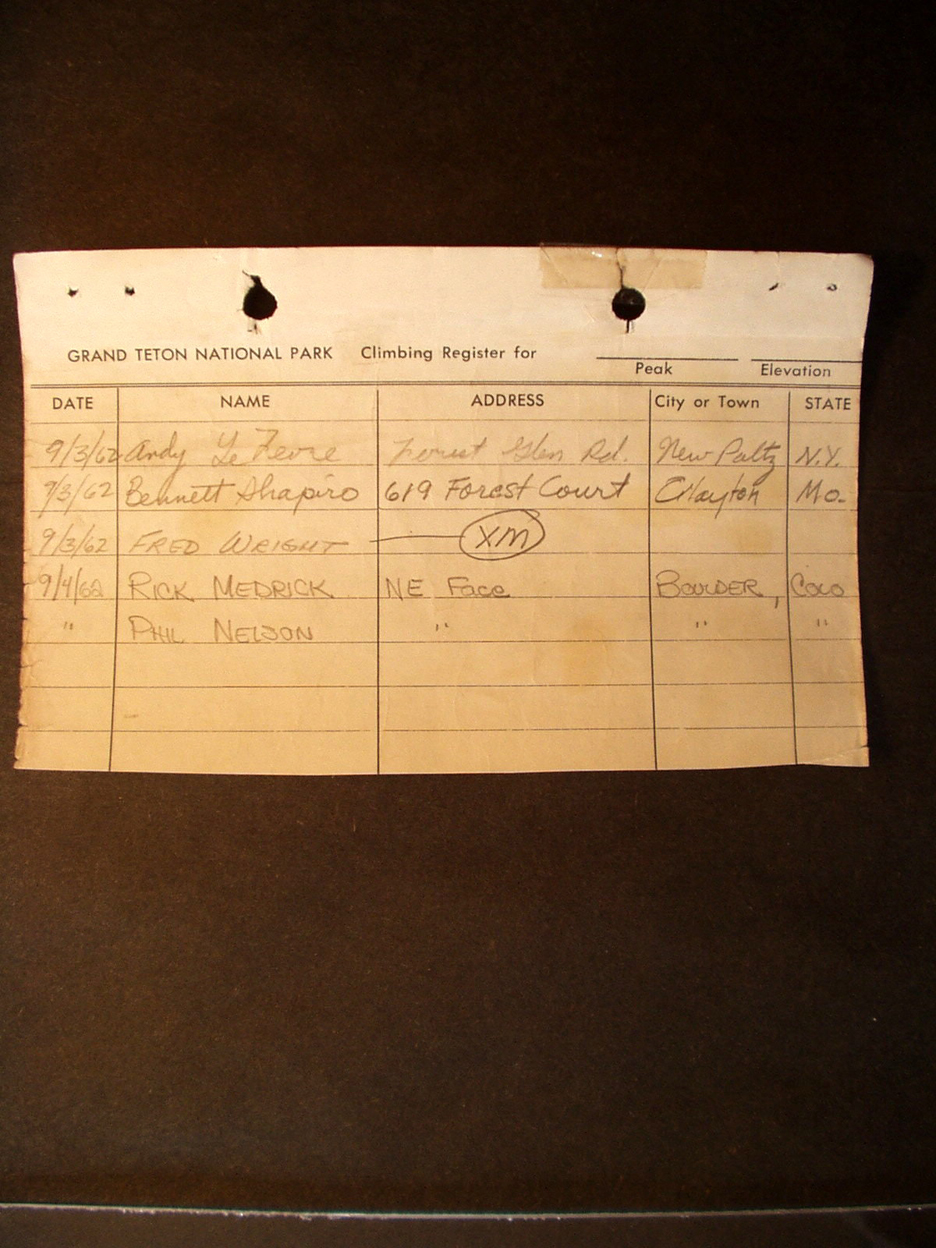 GRAND TETON NATIONAL PARK Climbing Register for
Peak Elevation
DATE NAME ADDRESS City or Town STATE
9/3/62 Andy LeFevre Forest Glen Rd. New Paltz N.Y.
9/3/62 Bennett Shapiro 619 Forest Court Clayton Mo.
9/3/62 FRED WRIGHT XM
9/4/62 RICK MEDRICK NE Face BOULDER, COLO
" PHIL NELSON " " "